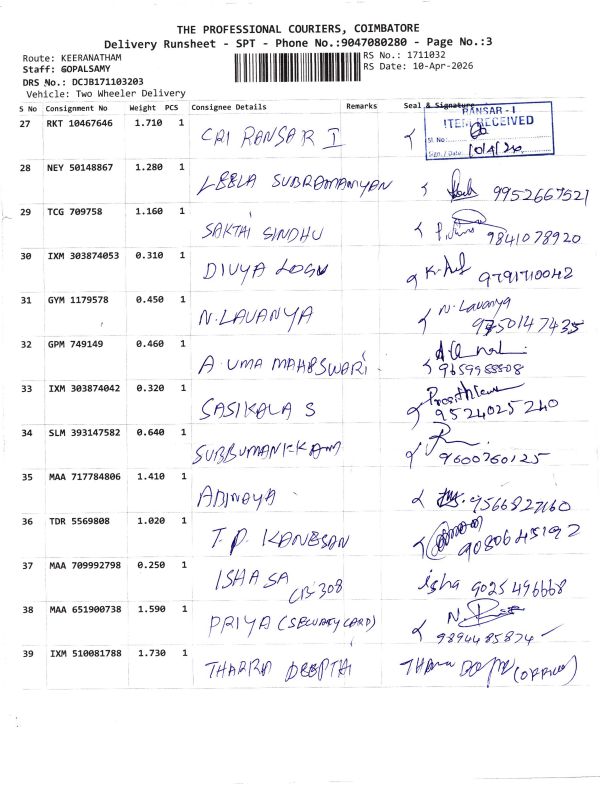 THE PROFESSIONAL COURIERS, COIMBATORE
Delivery Runsheet - SPT - Phone No.:9047080280 - Page No.:3
Route: KEERANATHAM
RS No.: 1711032
Staff: GOPALSAMY
RS Date: 10-Apr-2026
DRS No.: DCJB171103203
Vehicle: Two Wheeler Delivery
S No Consignment No Weight PCS Consignee Details Remarks Seal & Signature
27 RKT 10467646 1.710 1 CRI RANSAR I
RANSAR - I
ITEM RECEIVED
Sl. No:
Sign. / Date
28 NEY 50148867 1.280 1 LEELA SUBRAMANIYAN 9952667521
29 TCG 709758 1.160 1 SAKTHI SINDHU 9841078920
30 IXM 303874053 0.310 1 DIVYA LOGU 9791710042
31 GYM 1179578 0.450 1 N. LAVANYA N. Lavanya
32 GPM 749149 0.460 1 A. UMA MAHESWARI
33 IXM 303874042 0.320 1 SASIKALA S 9524025240
34 SLM 393147582 0.640 1 9600760125
35 MAA 717784806 1.410 1 ABINAYA 9566827160
36 TDR 5569808 1.020 1 T.P. KANESAN 9080645192
37 MAA 709992798 0.250 1 ISHA SA isha 9025496668
CB-308
38 MAA 651900738 1.590 1 PRIYA 9894485874
39 IXM 510081788 1.730 1 DEEPTHI (OFFICE)